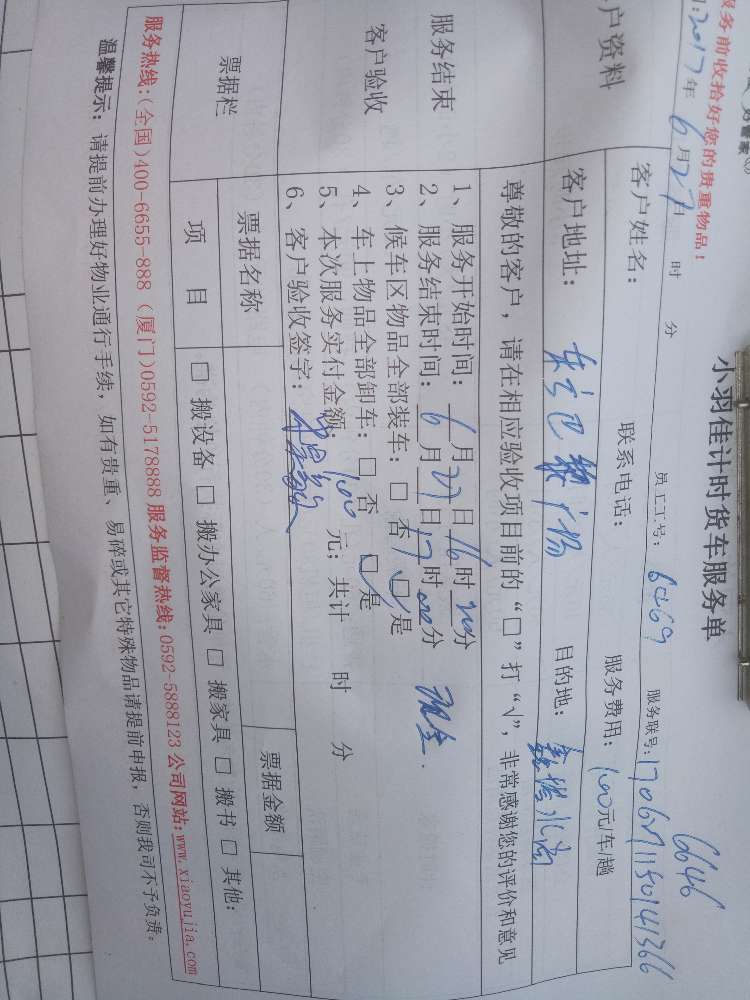 小羽佳计时货车服务单
服务前收拾好您的贵重物品!
2017年6月27日 时 分 员工工号: 6469 服务联号: 1706271150141366
6646
客户资料
客户姓名: 联系电话: 服务费用: 100元/车/趟
客户地址: 目的地:
尊敬的客户,请在相应验收项目前的“□”打“√”,非常感谢您的评价和意见
服务结束
客户验收
1、服务开始时间: 6月27日16时20分
2、服务结束时间: 6月27日17时00分 现金.
3、候车区物品全部装车: □ 否 □ 是
4、车上物品全部卸车: □ 否 □ 是
5、本次服务实付金额: 100元; 共计 时 分
6、客户验收签字:
票据栏
票据名称 票据金额
项 目 □ 搬设备 □ 搬办公家具 □ 搬家具 □ 搬书 □ 其他:
服务热线:(全国)400-6655-888 (厦门)0592-5178888 服务监督热线:0592-5888123 公司网站:www.xiaoyujia.com
温馨提示: 请提前办理好物业通行手续, 如有贵重、易碎或其它特殊物品请提前申报, 否则我司不予负责。